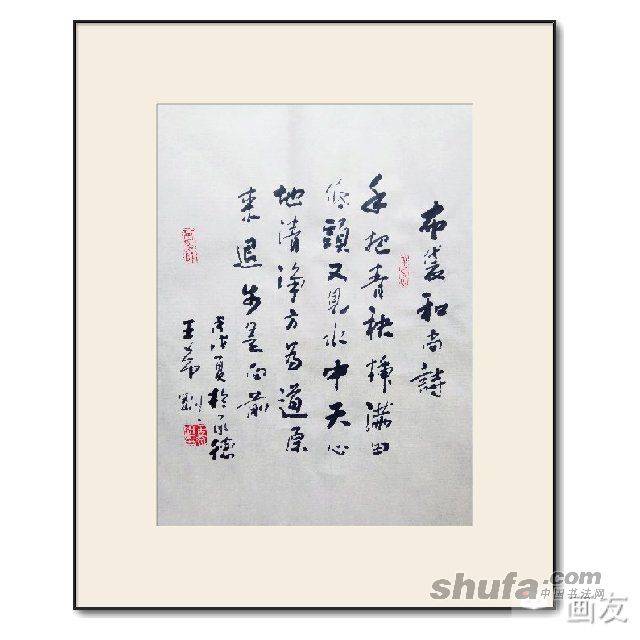 布袋和尚詩
手把青秧插滿田
低頭又見水中天心
地清淨方為道原
来退步是向前
戊戌夏於承德
王希
shufa.com
中国书法网
画友